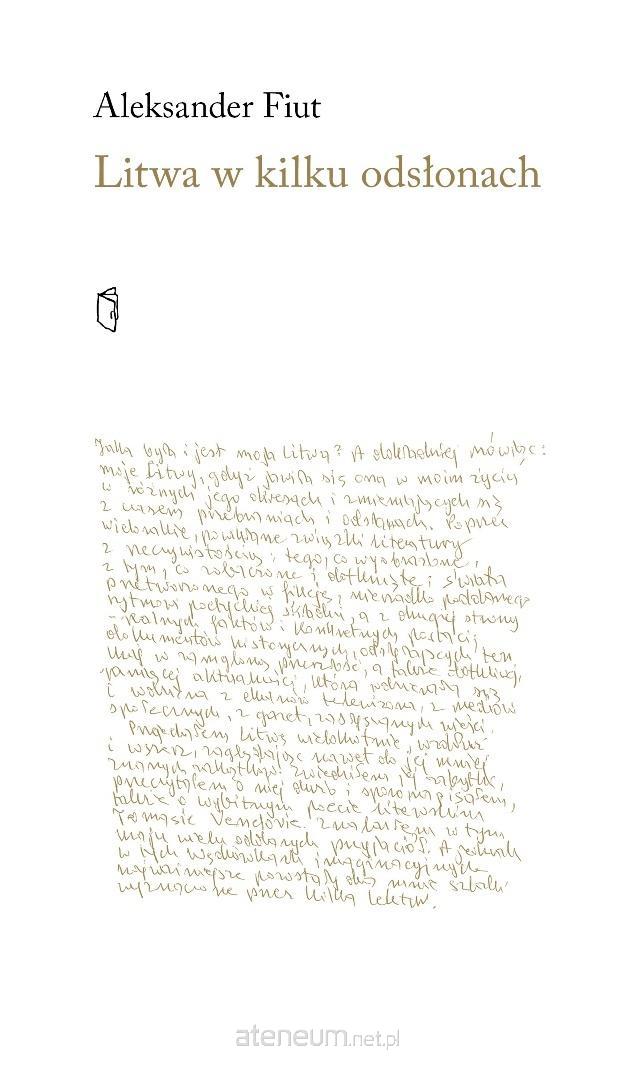 Aleksander Fiut
Litwa w kilku odsłonach
Jaka była i jest moja Litwa? A dokładniej mówiąc:
moje Litwy, gdyż jawiła się ona w moim życiu
w różnych jego okresach i zmieniających się
z czasem przebraniach i odsłonach. Poprzez
wielorakie, powikłane związki literatury
z rzeczywistością i tego, co wyobrażone,
z tym, co zobaczone i dotknięte i świata
przetworzonego w fikcję, nierzadko poddanego
rytmowi poetyckiej, a z drugiej strony
realnych faktów i konkretnych postaci,
dokumentów historycznych, odsyłających ten
kraj w zamgloną przeszłość, a także dotkliwej,
aktualności, która
i z ekranów telewizora, z mediów
społecznych, z gazet, zasłyszanych wieści.
Przejechałem Litwę wielokrotnie, wzdłuż
i wszerz, zaglądając nawet do jej mniej
znanych zakątków. Zwiedziłem jej zabytki,
przeczytałem o niej dużo i sporo napisałem,
także o wybitnym poecie litewskim
Tomasie Venclovie. Znalazłem w tym
kraju wielu oddanych przyjaciół. A jednak
w tych wędrówkach imaginacyjnych
najważniejsze pozostały dla mnie szlaki
wyznaczone przez kilka lektur.
ateneum.net.pl